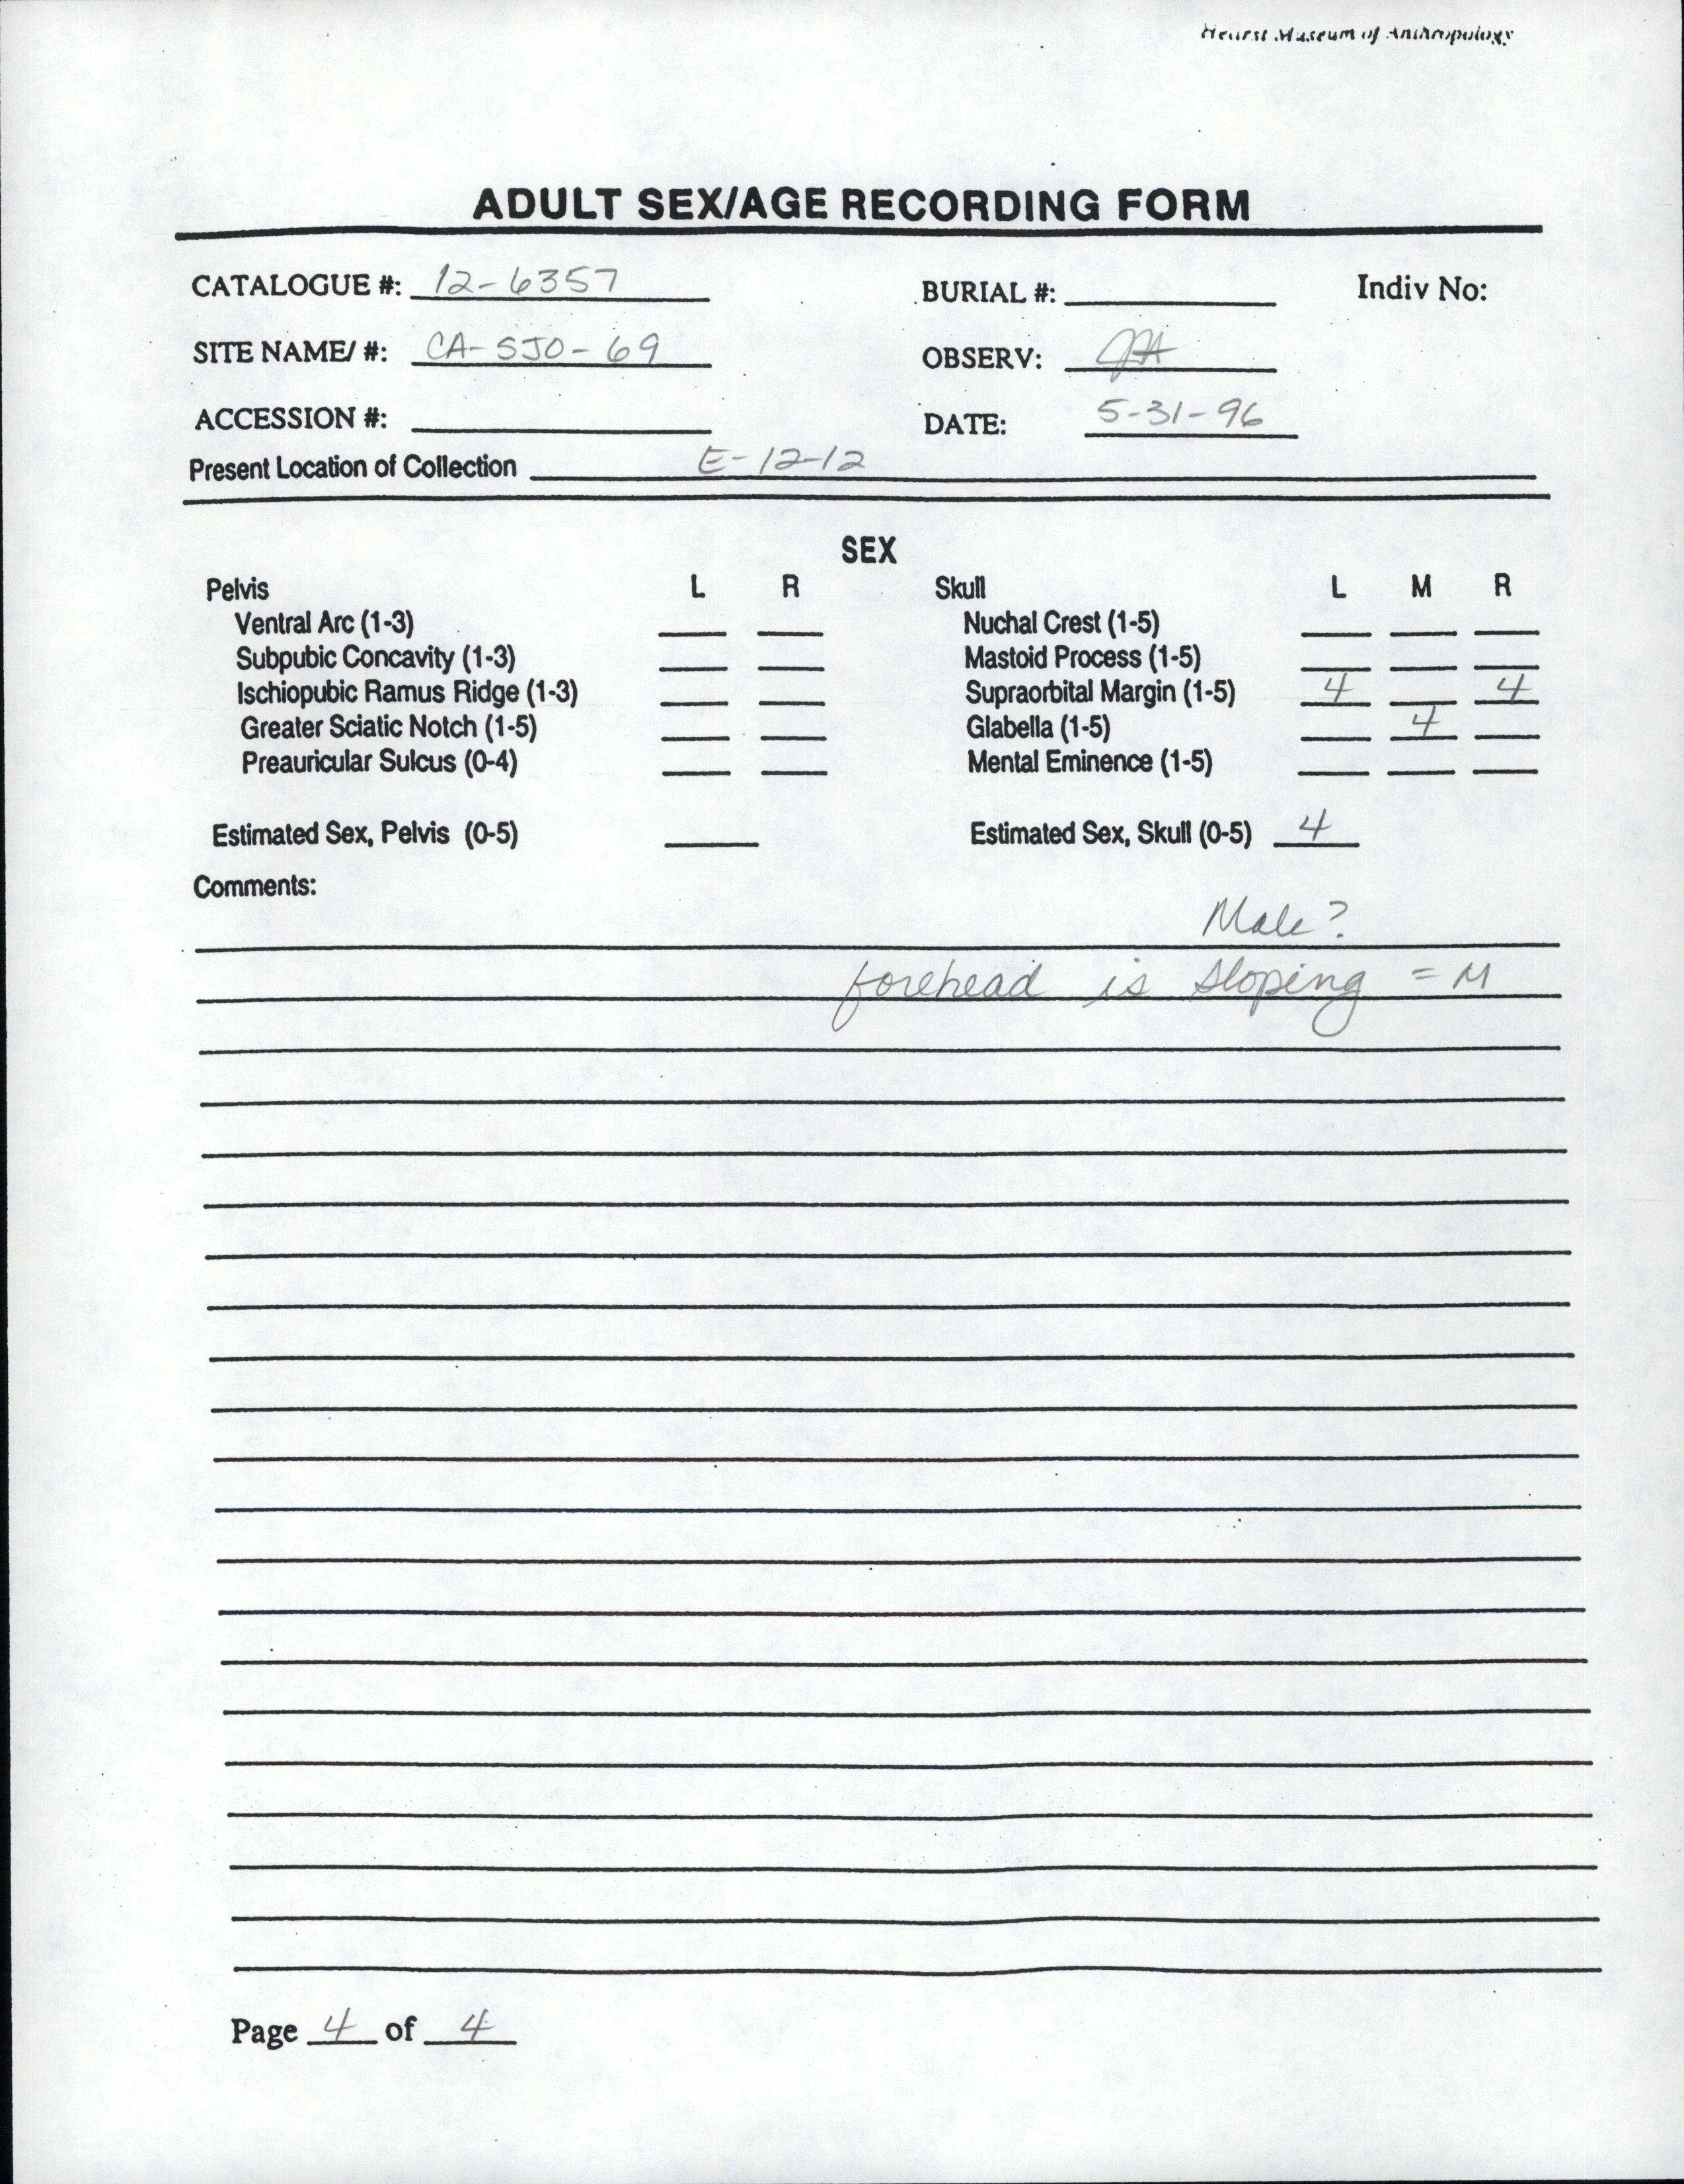 Hearst Museum of Anthropology
ADULT SEX/AGE RECORDING FORM
CATALOGUE #: 12-6357 BURIAL #: Indiv No:
SITE NAME/ #: CA-SJO-69 OBSERV:
ACCESSION #: DATE: 5-31-96
Present Location of Collection E-12-12
SEX
Pelvis L R Skull L M R
Ventral Arc (1-3) Nuchal Crest (1-5)
Subpubic Concavity (1-3) Mastoid Process (1-5)
Ischiopubic Ramus Ridge (1-3) Supraorbital Margin (1-5) 4 4
Greater Sciatic Notch (1-5) Glabella (1-5) 4
Preauricular Sulcus (0-4) Mental Eminence (1-5)
Estimated Sex, Pelvis (0-5) Estimated Sex, Skull (0-5) 4
Comments:
Male?
forehead is sloping = M
Page 4 of 4